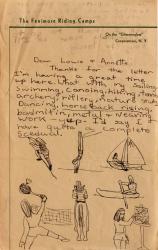 The Fenimore Riding Camps
On the "Glimmerglass"
Cooperstown, N. Y.
Dear Louie & Annette,
Thanks for the letter
I'm having a great time
up here. What with my Sailing
Swimming, Canoeing, hiking, tennis
archery, riflery, nature study
Dancing, horse back riding,
badmitin, metal & weaving
work — I'd say I
have quite a complete
scedual.